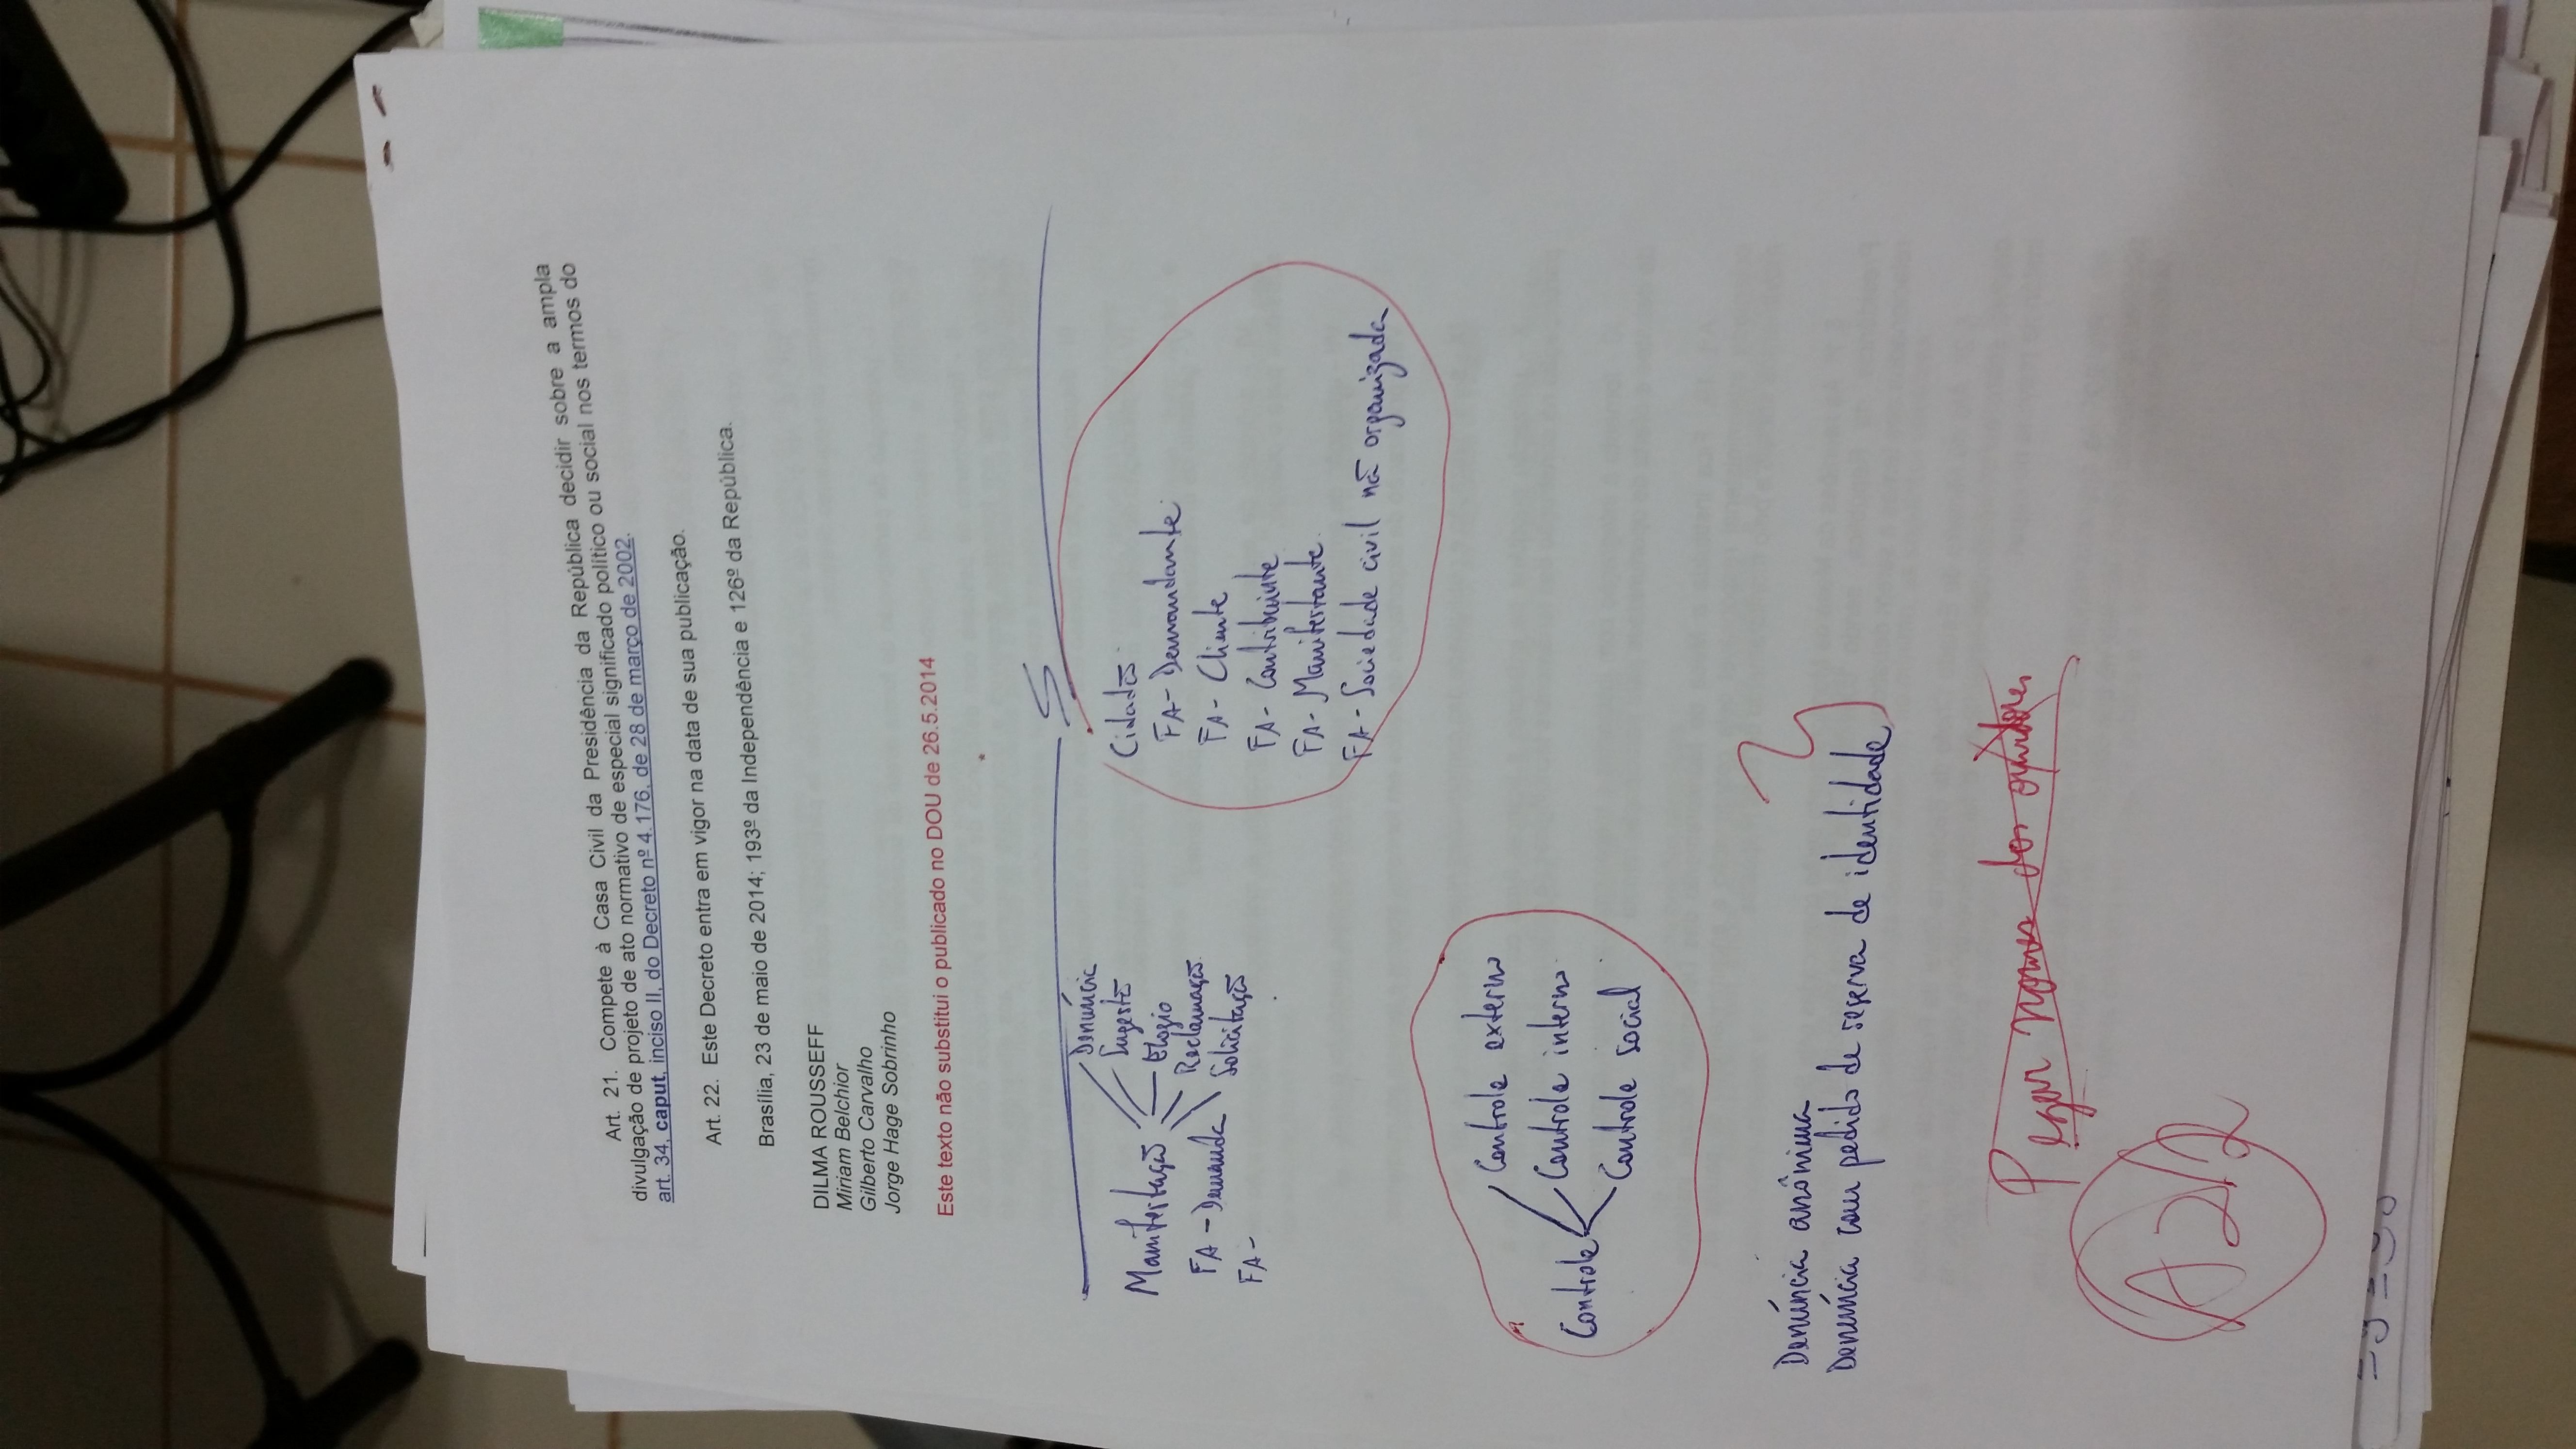 Art. 21. Compete à Casa Civil da Presidência da República decidir sobre a ampla
divulgação de projeto de ato normativo de especial significado político ou social nos termos do
art. 34, caput, inciso II, do Decreto nº 4.176, de 28 de março de 2002.
Art. 22. Este Decreto entra em vigor na data de sua publicação.
Brasília, 23 de maio de 2014; 193º da Independência e 126º da República.
DILMA ROUSSEFF
Miriam Belchior
Gilberto Carvalho
Jorge Hage Sobrinho
Este texto não substitui o publicado no DOU de 26.5.2014
Manifestação
Denúncia
Sugestão
Elogio
Reclamação
Solicitação
FA - Demanda
FA -
Cidadão
FA - Demandante
FA - Cliente
FA - Contribuinte
FA - Manifestante
FA - Sociedade civil não organizada
Controle
Controle externo
Controle interno
Controle social
Denúncia anônima
Denúncia com pedido de reserva de identidade